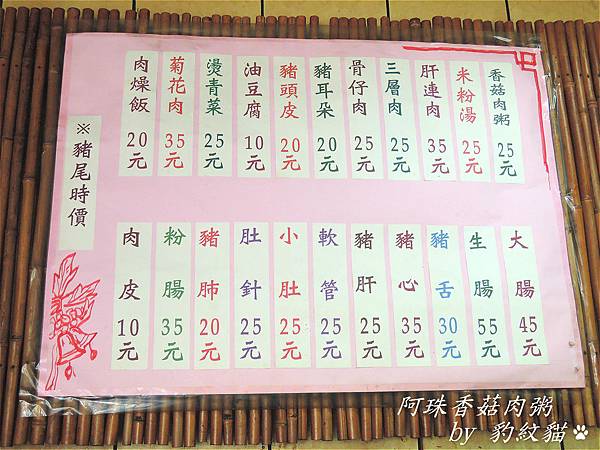 香菇肉粥 25元
米粉湯 25元
肝連肉 35元
三層肉 25元
骨仔肉 25元
豬耳朵 20元
豬頭皮 20元
油豆腐 10元
燙青菜 25元
菊花肉 35元
肉燥飯 20元
大腸 45元
生腸 55元
豬舌 30元
豬心 35元
豬肝 25元
軟管 25元
小肚 25元
肚針 25元
豬肺 20元
粉腸 35元
肉皮 10元
※豬尾時價
阿珠香菇肉粥
by 豹紋貓